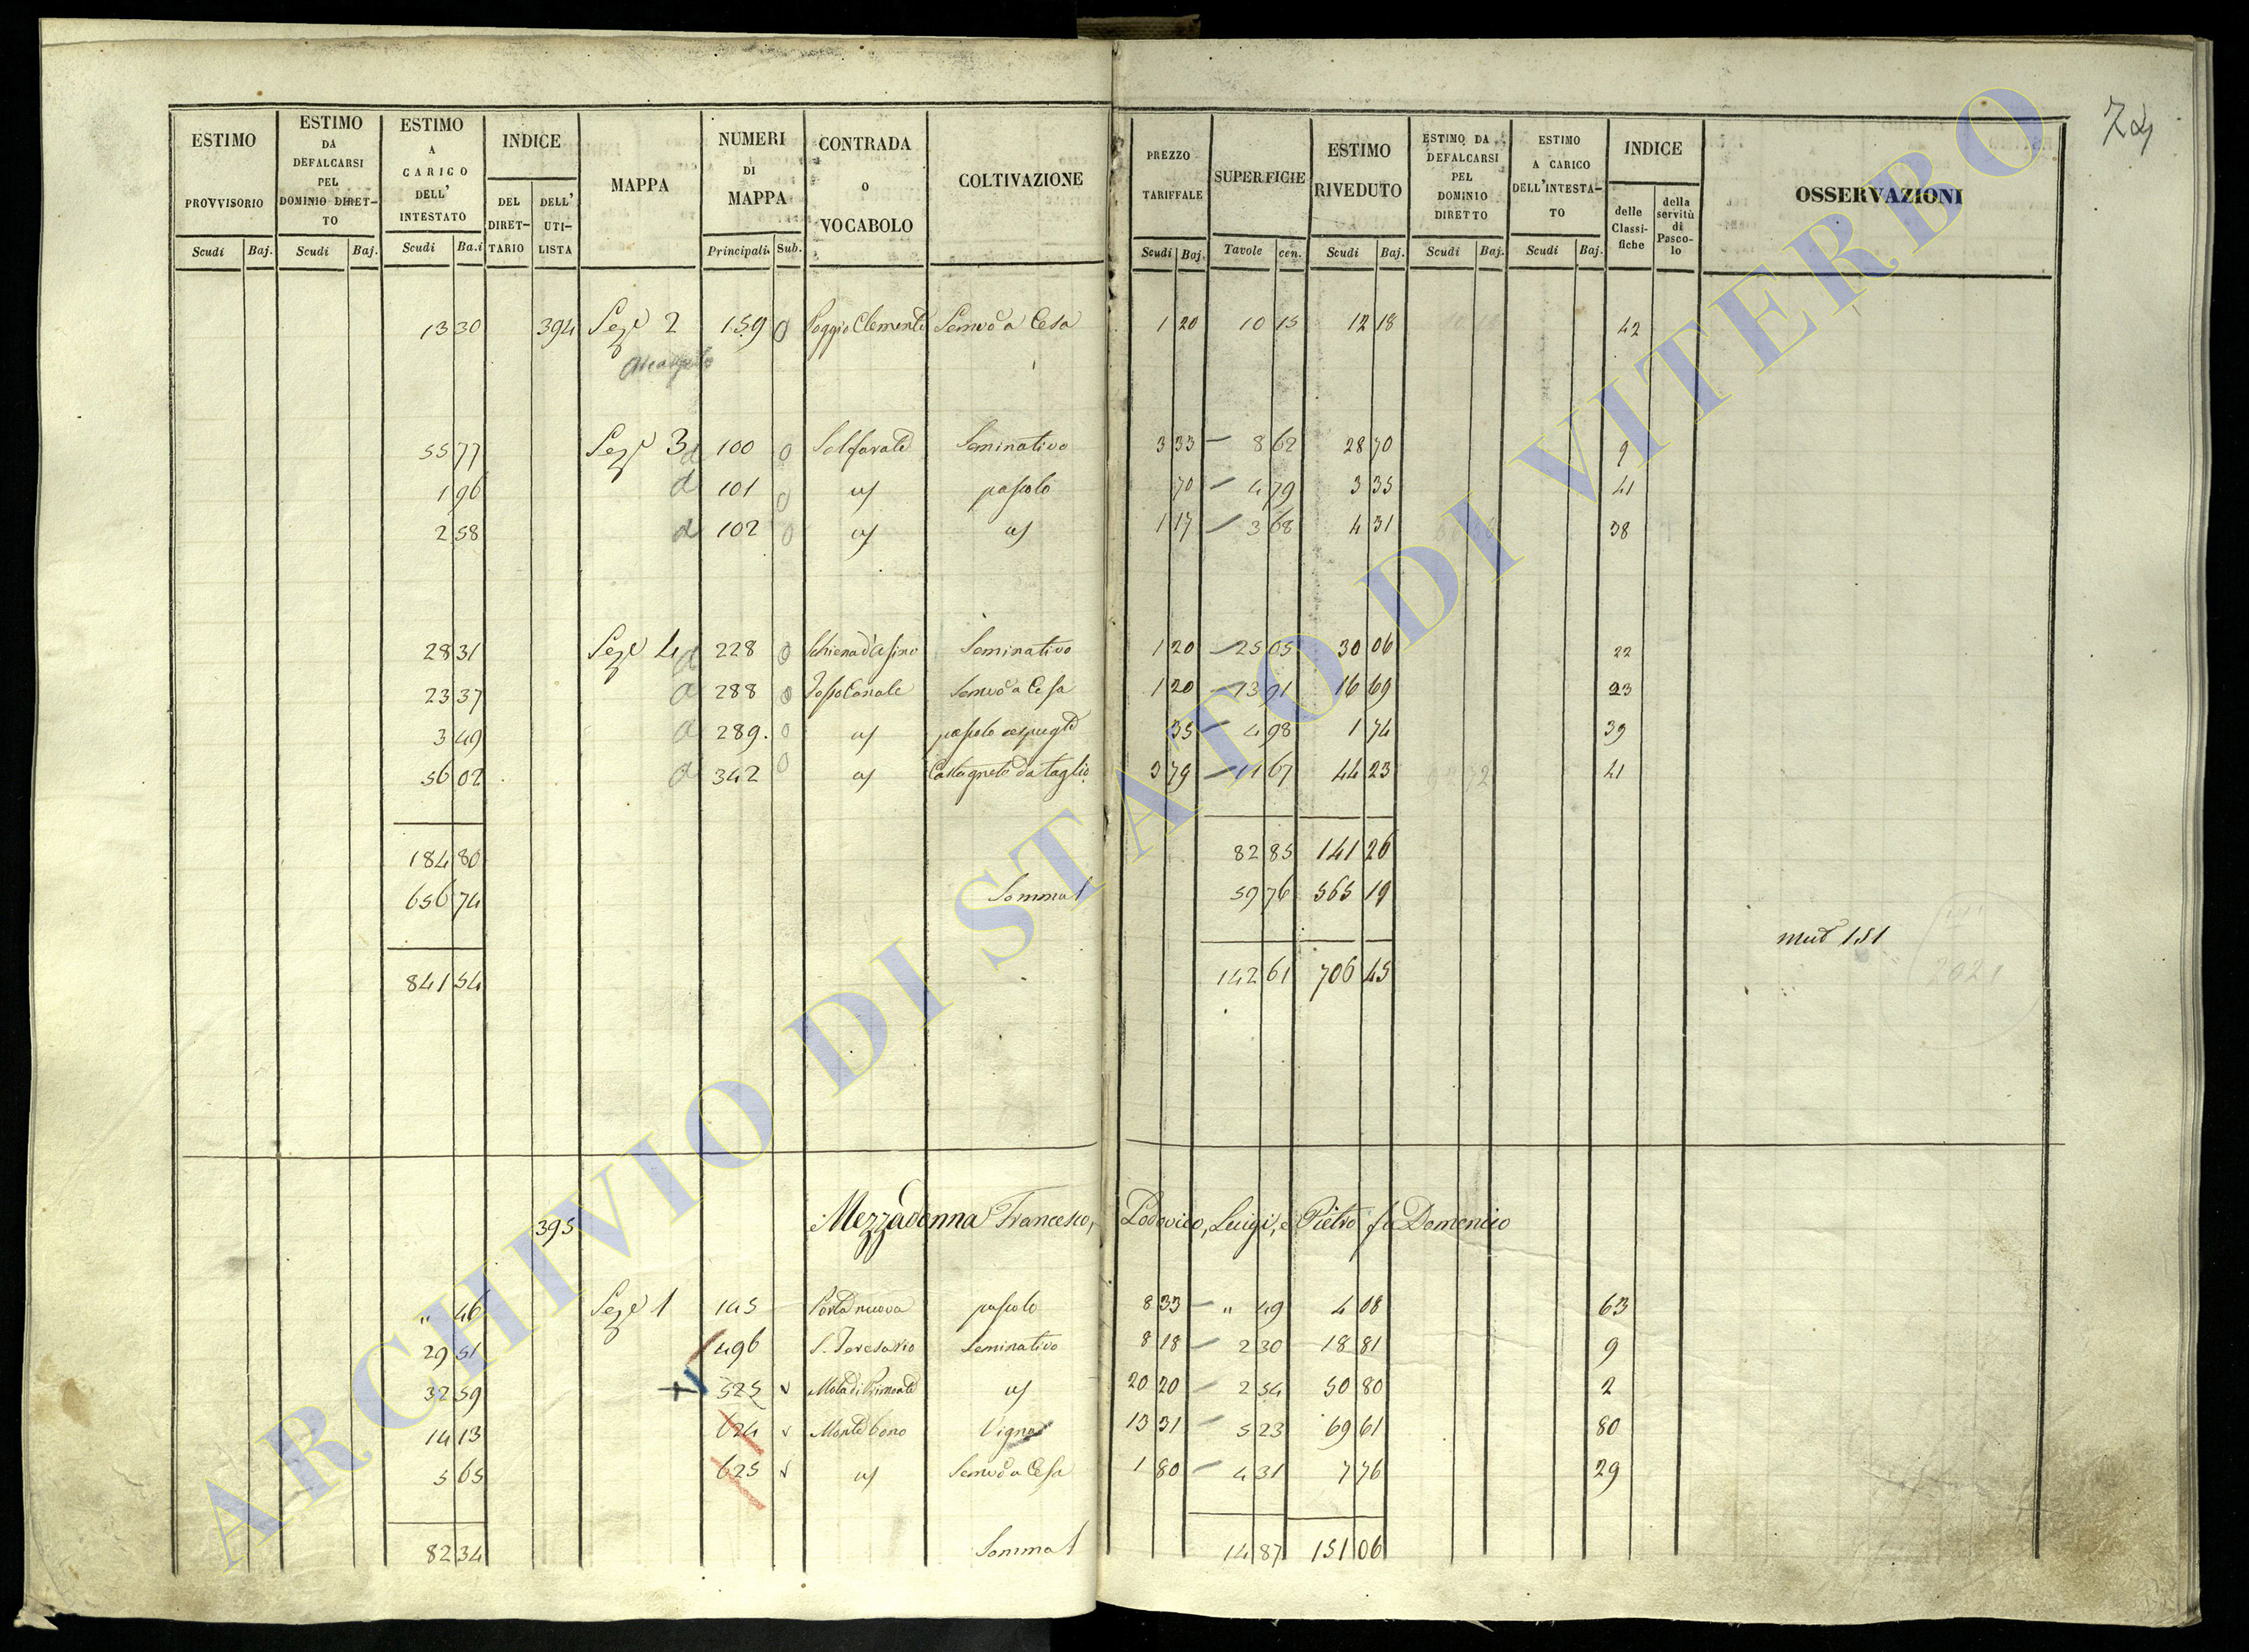 74
ESTIMO PROVVISORIO Scudi Baj.
ESTIMO DA DEFALCARSI PEL DOMINIO DIRETTO Scudi Baj.
ESTIMO A CARICO DELL' INTESTATO Scudi Ba.i
INDICE DEL DIRETTARIO DELL' UTILISTA
MAPPA
NUMERI DI MAPPA Principali. Sub.
CONTRADA O VOCABOLO
COLTIVAZIONE
PREZZO TARIFFALE Scudi Baj.
SUPERFICIE Tavole cen.
ESTIMO RIVEDUTO Scudi Baj.
ESTIMO DA DEFALCARSI PEL DOMINIO DIRETTO Scudi Baj.
ESTIMO A CARICO DELL'INTESTATO Scudi Baj.
INDICE delle Classifiche della servitù di Pascolo
OSSERVAZIONI
13 30 394 Seze 2 159 0 Poggio Clemente Semvo a Cesa 1 20 10 15 12 18 42
55 77 Seze 3 a 100 0 Solfarate Seminativo 3 33 8 62 28 70 9
1 96 a 101 0 a/ pascolo 70 4 79 3 35 41
2 58 a 102 0 a/ a/ 1 17 3 68 4 31 38
28 31 Seze 4 a 228 0 Schiena d'Asino Seminativo 1 20 25 05 30 06 22
23 37 a 288 0 Semvo a Cesa 1 20 13 91 16 69 23
3 49 a 289. 0 a/ pascolo cespugto 35 4 98 1 74 39
56 02 a 342 0 a/ Castagneto da taglio 3 79 11 67 44 23 41
184 80 82 85 141 26
656 74 Somma 59 76 565 19
mut 151
841 54 142 61 706 45
395 Mezzadonna Francesco, Lodovico, Luigi, e Pietro fu Domenico
" 46 Seze 1 145 Porta nuova pascolo 8 33 " 49 4 08 63
29 51 496 Seminativo 8 18 2 30 18 81 9
32 59 525 a/ 20 20 2 54 50 80 2
14 13 624 Monte bono Vigna 13 31 5 23 69 61 80
5 65 625 a/ Semvo a Cesa 1 80 4 31 7 76 29
82 34 Somma 14 87 151 06
ARCHIVIO DI STATO DI VITERBO